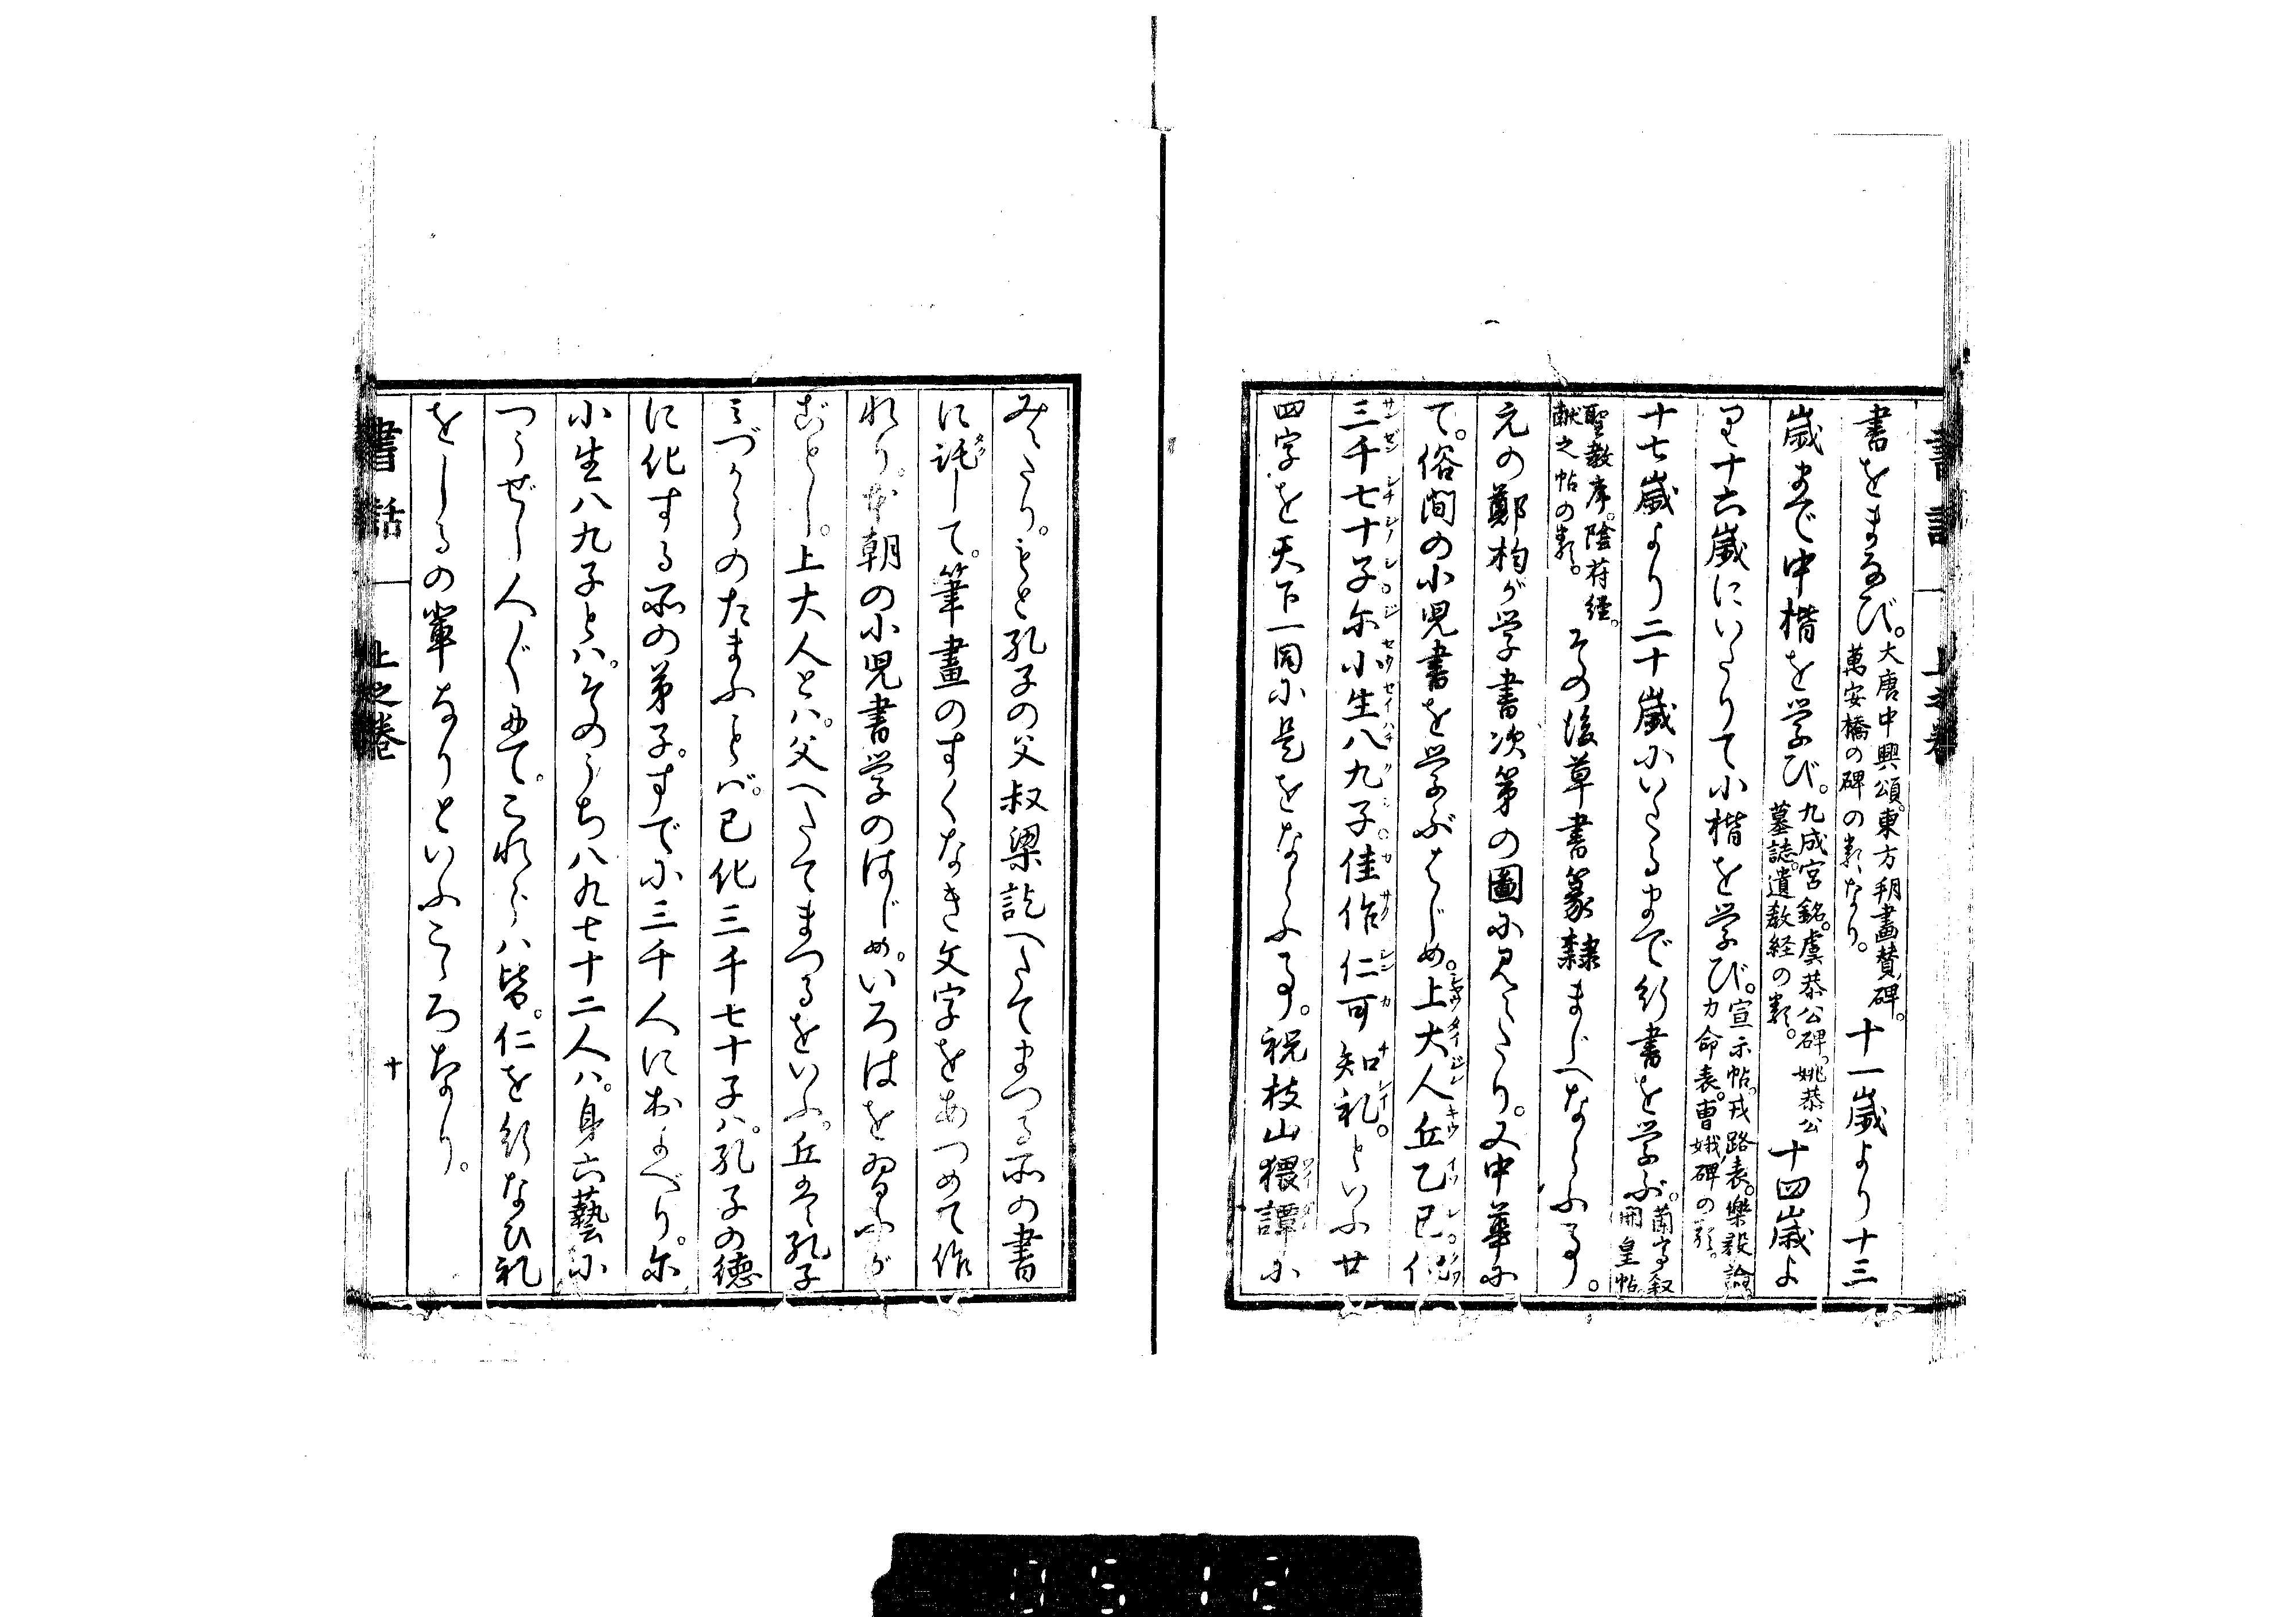 書話 上之巻
書をまなび。大唐中興頌。東方朔畫賛碑。萬安橋の碑の類なり。十一歳より十三
歳まで中楷を学び。九成宮銘。虞恭公碑。姚恭公墓誌。遺教経の類。十四歳よ
り十六歳にいたりて小楷を学び。宣示帖。戎路表。樂毅論。力命表。曹娥碑の類。
十七歳より二十歳にいたるまで行書を学ぶ。蘭亭叙。開皇帖。
聖教序。陰符経。献之帖の類。その後草書篆隸まじへならふ事。
元の鄭杓が学書次第の圖に見えたり。又中華に
て。俗間の小児書を学ぶはじめ。上大人丘乙已化
三千七十子尓小生八九子佳作仁可知礼。といふ廿
四字を天下一同に是をならふ事。祝枝山猥譚に
みえたり。もと孔子の父叔梁訖へたてまつる所の書
に託して。筆畫のすくなき文字をあつめて作
れり。本朝の小児書学のはじめ。いろはを習ふが
ごとし。上大人とハ。父へたてまつるをいふ。丘は孔子
みづからのたまふことバ。已化三千七十子ハ。孔子の徳
に化する所の弟子。すでに三千人におよべり。尓
小生八九子とハ。そのうち八九七十二人ハ。身六藝に
つうぜし人〴〵にて。これらハ皆。仁を行なひ礼
をしるの輩なりといふこゝろなり。
書話 上之巻 十